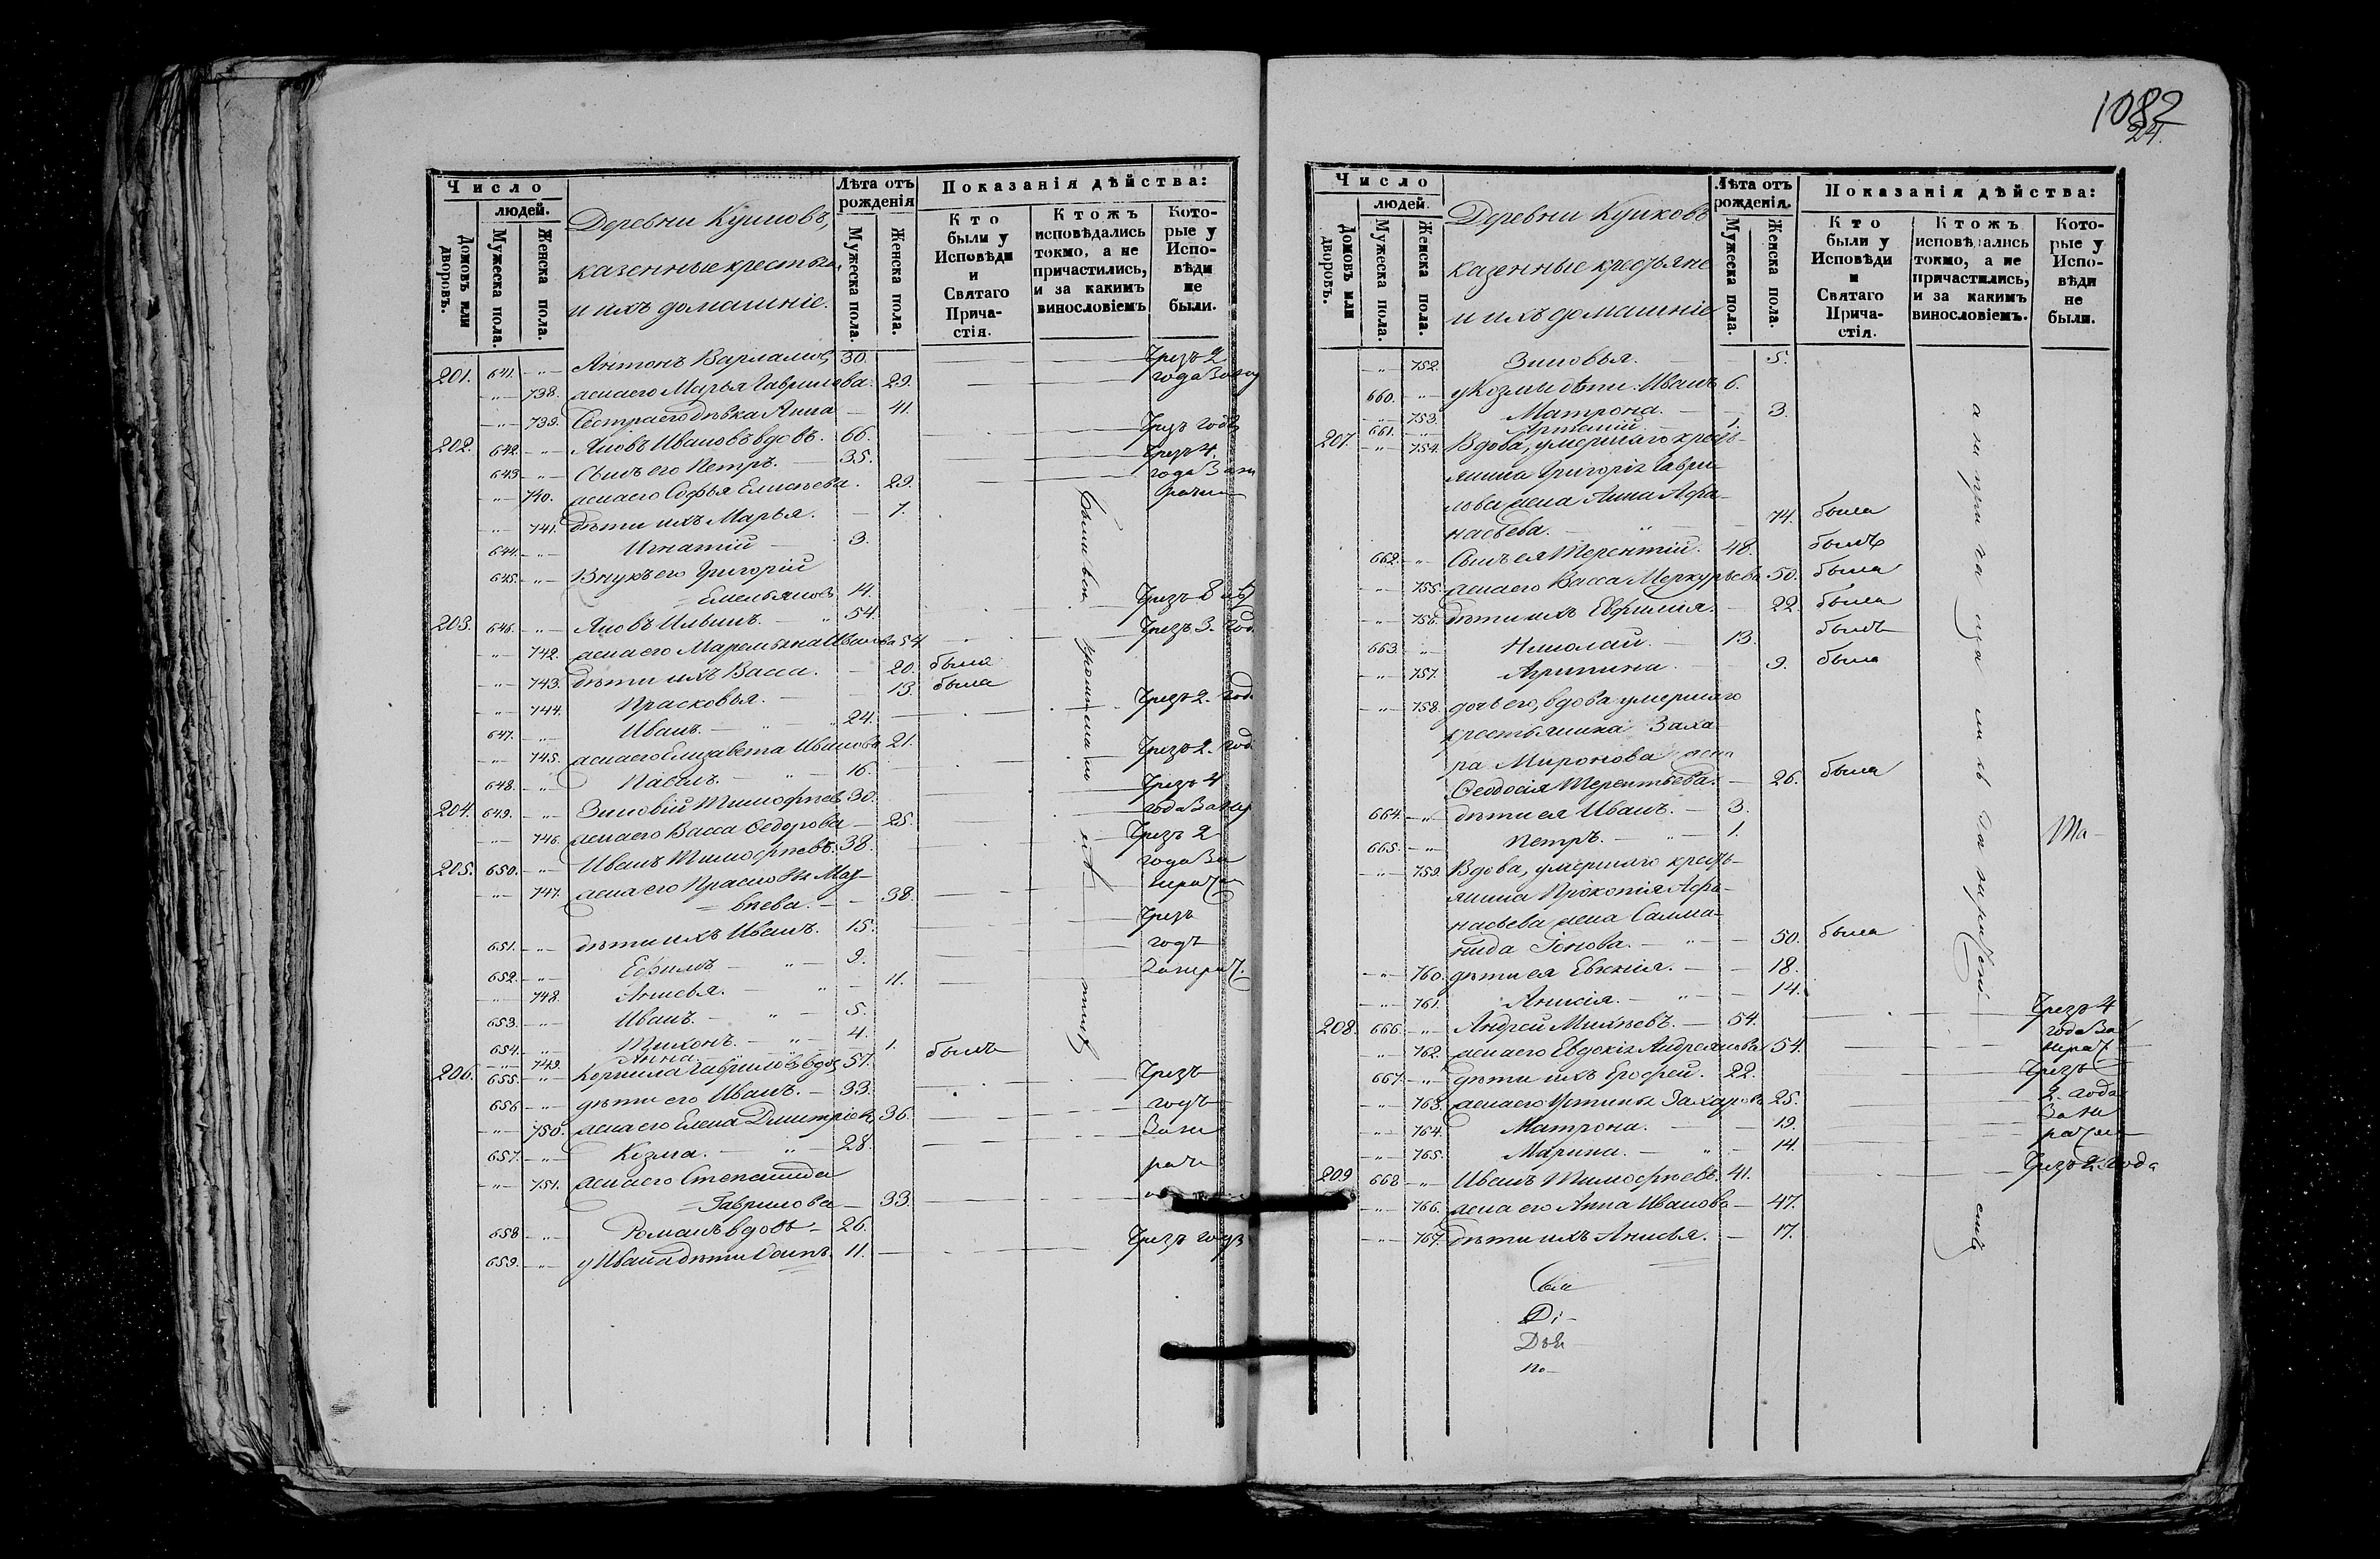 1082
24.
Число
людей.
Домовъ или дворовъ.
Мужеска пола.
Женска пола.
Деревни Куликовъ,
казенные крестьяне
и ихъ домашніе.
Лѣта отъ рожденія
Мужеска пола.
Женска пола.
Показанія дѣйства:
Кто были у Исповѣди и Святаго Прича-стія.
Ктожъ исповѣдались токмо, а не причастились, и за какимъ винословіемъ
Кото-рые у Испо-вѣди не были.
201. 641. -"- Антонъ Варламовъ 30. Чрезъ 2
-"- 738. жена его Марья Гаврилова. 29. года
-"- 739. Сестра его дѣвка Анна — 41.
202. 642. -"- Яковъ Ивановъ вдовъ. 66. Чрезъ годъ
643. -"- Сынъ его Петръ. — 35. Чрезъ 4.
-"- 740. жена его Софья Елисеева. 29. года
-"- 741. дѣти ихъ Марья. — 7.
644. -"- Игнатій — 3.
645. -"- Внукъ его Григорій
Емельяновъ 14. Чрезъ 8 лѣтъ
203. 646. -"- Яковъ Ильинъ. — 54. Чрезъ 3. год.
-"- 742. жена его Маремьяна Иванова 54
-"- 743. дѣти ихъ Васса. — 20. была
-"- 744. Прасковья. — 13. была
647. -"- Иванъ. — 24. Чрезъ 2. года
-"- 745. жена его Елизавета Иванова 21.
648. -"- Павелъ. — 16. Чрезъ 2. год.
204. 649. -"- Зиновій Тимофѣевъ 30. Чрезъ 4
-"- 746. жена его Васса Федорова — 25. года
205. 650. -"- Иванъ Тимофѣевъ. 38. Чрезъ 2
-"- 747. жена его Прасковья Мат- года
=вѣева. — 38.
651. -"- дѣти ихъ Иванъ. 15. Чрезъ
652. -"- Ефимъ — 9. годъ
-"- 748. Анисья. — 11.
653. -"- Иванъ. — 5.
654. -"- Тихонъ. — 4.
-"- 749. Анна 1.
206. 655. -"- Корнила Гавриловъ вдов. 57. былъ
656 -"- дѣти его Иванъ. — 33. Чрезъ
-"- 750. жена его Елена Дмитріева 36. годъ
657. -"- Козма. — 28.
-"- 751. жена его Степанида
=Гаврилова — 33.
658 -"- Романъ вдовъ — 26.
659. -"- у Ивана дѣти Осипъ 11. Чрезъ годъ
Число
людей.
Домовъ или дворовъ.
Мужеска пола.
Женска пола.
Деревни Куликовъ
казенные крестьяне
и ихъ домашніе
Лѣта отъ рожденія.
Мужеска пола.
Женска пола.
Показанія дѣйства:
Кто были у Исповѣди и Святаго Прича-стія.
Ктожъ исповѣдались токмо, а не причастились, и за какимъ винословіемъ.
Кото-рые у Испо-вѣди не были.
-"- 752. Зиновья. — 5.
660. -"- у Козмы дѣти: Иванъ 6.
-"- 753. Матрона. — 3.
661. -"- Артемій. — 1.
207. -"- 754. Вдова, умершаго кресть-
янина Григорія Гаври-
лова жена Анна Афа-
насьева. — 74. была
662. -"- Сынъ ея Терентій. 48. былъ
-"- 755. жена его Васса Меркурьева 50. была
-"- 756. дѣти ихъ Евфимия. — 22. была
663. -"- Николай. — 13. былъ
-"- 757. Агрипина. — 9. была
-"- 758. дочь его, вдова умершаго
крестьянина Заха-
ра Миронова жена
Ѳеодосія Терентьева. — 26. была
664. -"- дѣти ея Иванъ. — 3.
665. -"- Петръ. — 1.
-"- 759. Вдова, умершаго кресть-
янина Прокопія Афа-
насьева жена Салма-
нида Іонова. — 50. была
-"- 760. дѣти ея Евгенія. — 18.
-"- 761. Анисія. — 14.
208. 666. -"- Андрей Михѣевъ. — 54. Чрезъ 4
-"- 762. жена его Евдокія Андреянова 54. года
667. -"- дѣти ихъ Ерофей. 22. Чрезъ
-"- 763. жена его Устинья Захарова 25. 2. года
-"- 764. Матрона. — 19.
-"- 765. Марина. — 14.
209 668 -"- Иванъ Тимофѣевъ. 41. Чрезъ 2. года
-"- 766. жена его Анна Иванова — 47.
-"- 767. дѣти ихъ Анисья. — 17.
Ді-
по-